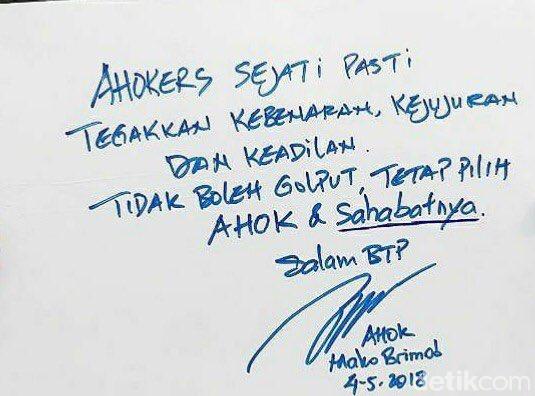 AHOKERS SEJATI PASTI
TEGAKKAN KEBENARAN, KEJUJURAN
DAN KEADILAN.
TIDAK BOLEH GOLPUT, TETAP PILIH
AHOK & Sahabatnya.
Salam BTP
AHOK
Mako Brimob
4-5-2018
detikcom